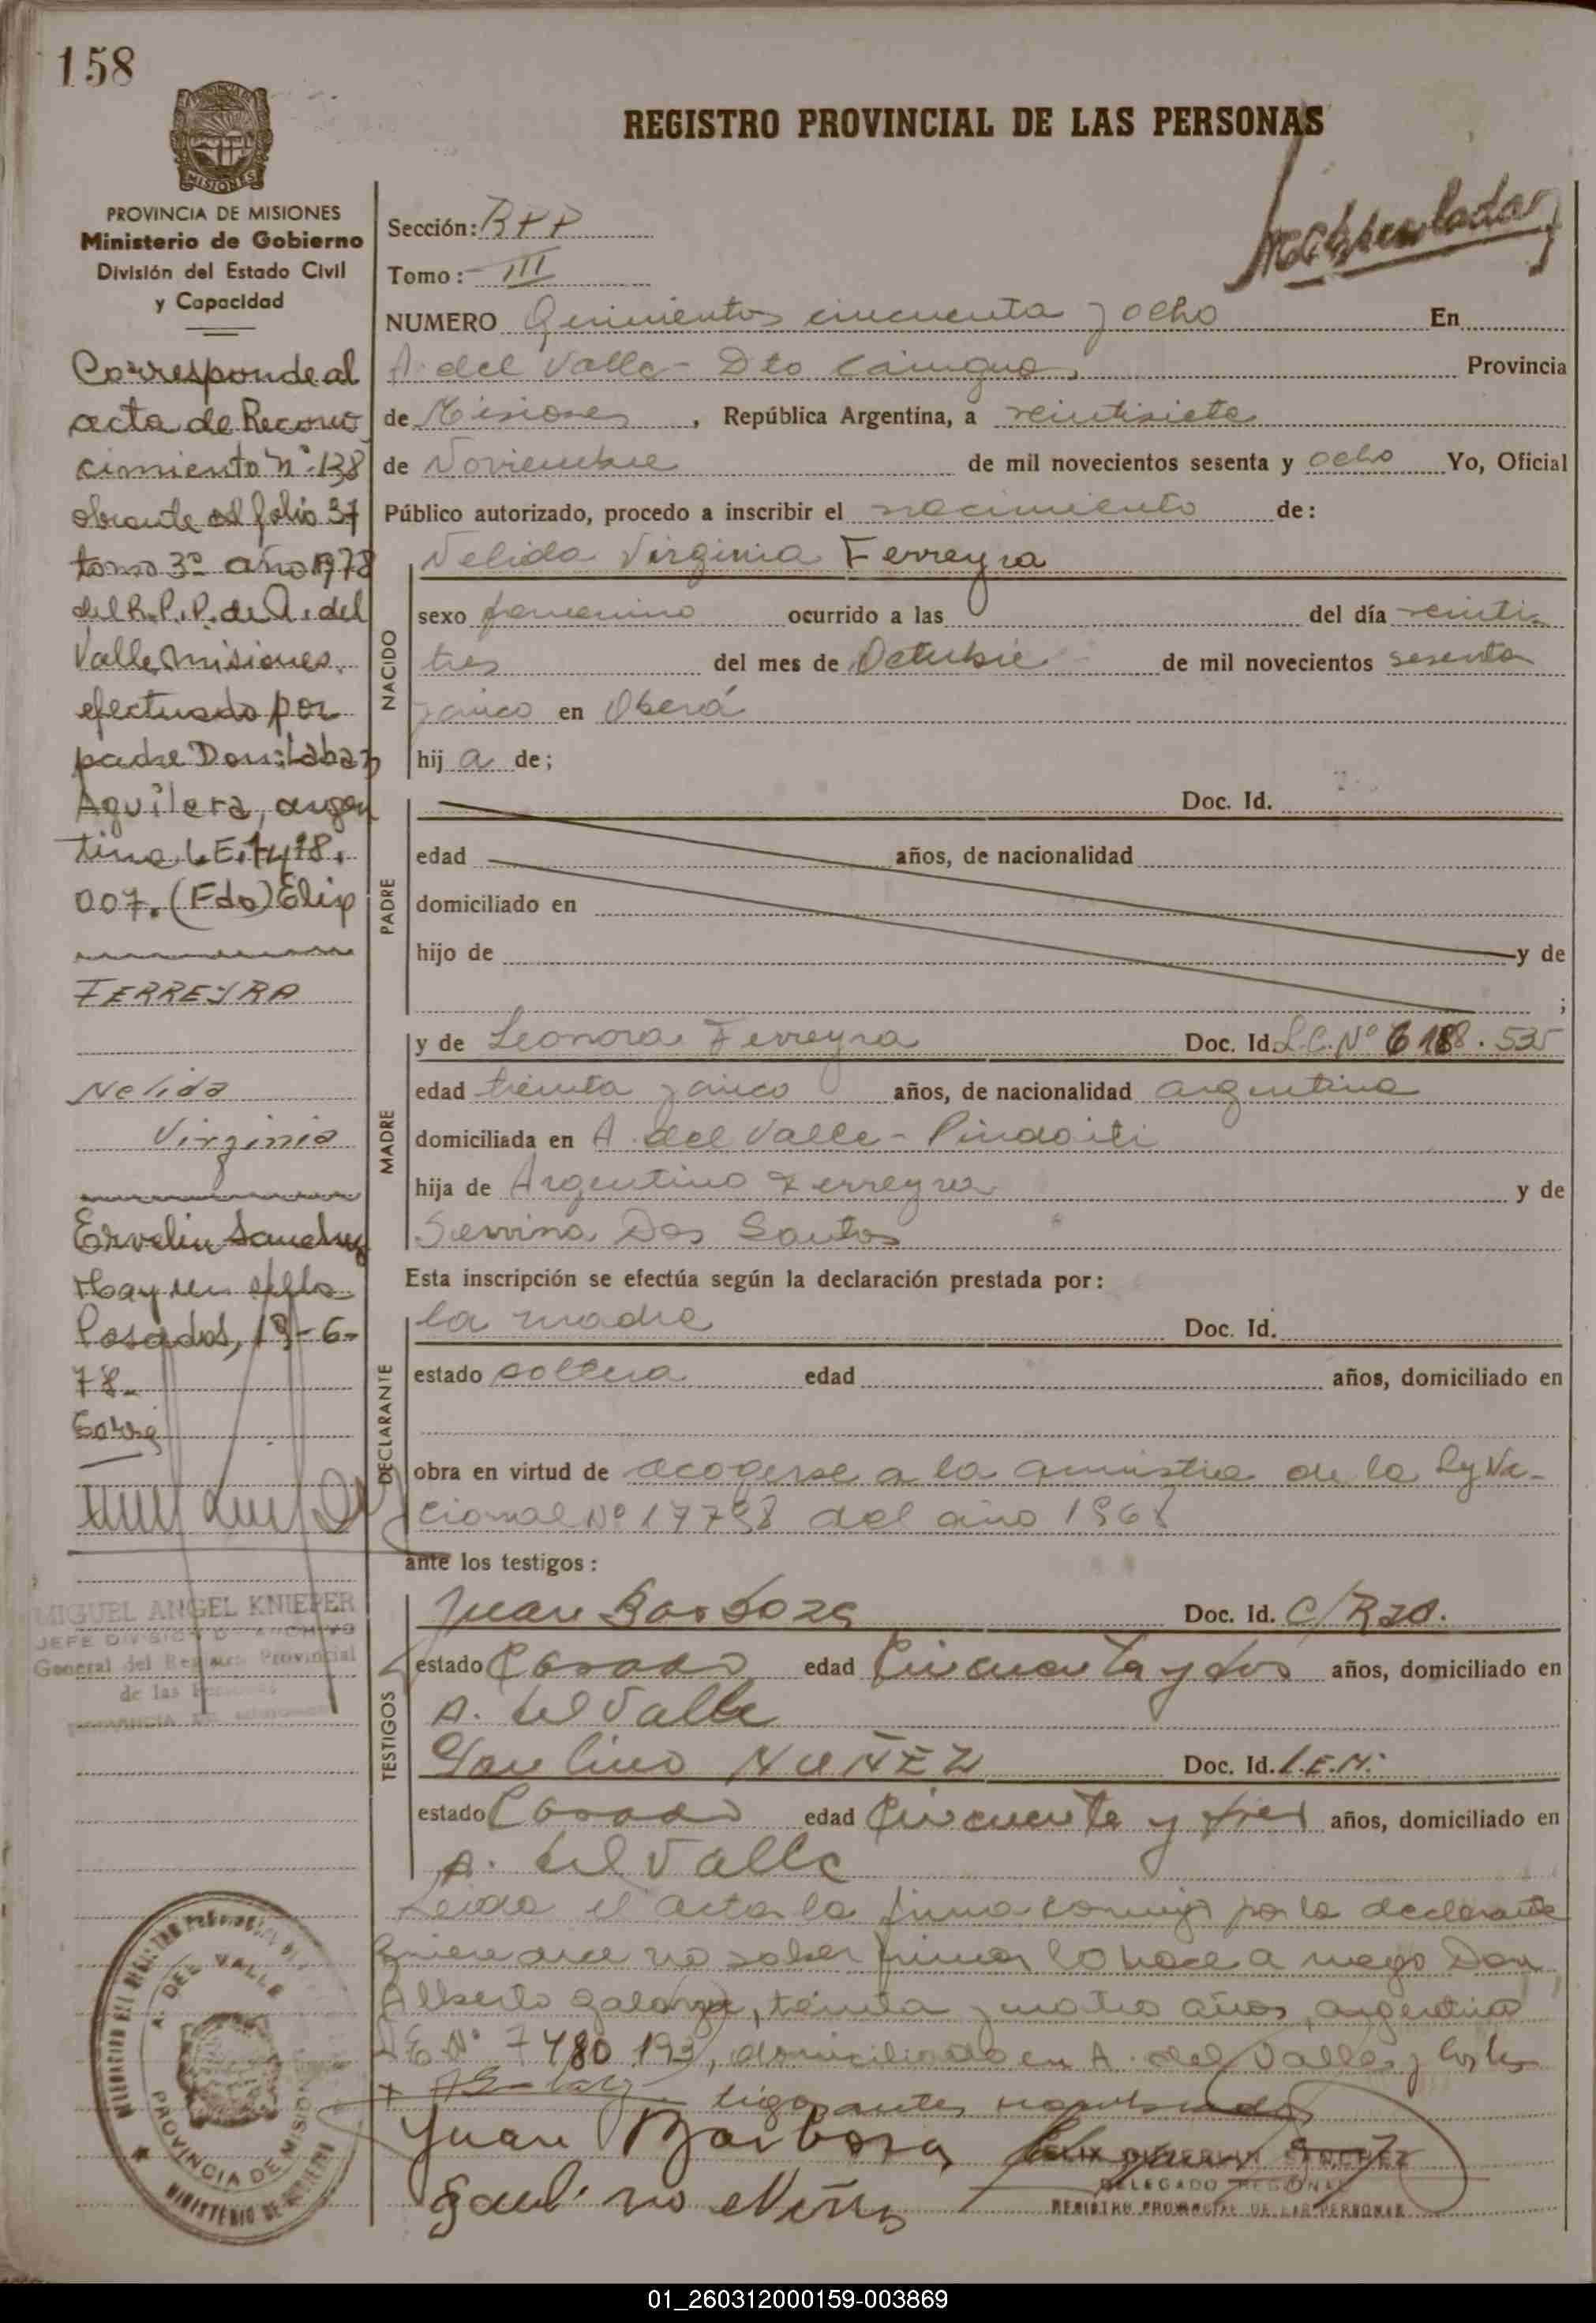 158
REGISTRO PROVINCIAL DE LAS PERSONAS
MISIONES
PROVINCIA DE MISIONES
Ministerio de Gobierno
División del Estado Civil
y Capacidad
Corresponde al
acta de Recono
cimiento nº 138
obrante al folio 37
tomo 3º año 1978
del R.P.P. de A. del
Valle Misiones.
efectuado por
padre Don: Labaz
Aguilera, argen
tino L.E. 7.478.
007. (Fdo) Elix
FERREYRA
Nelida
Virginia
Ervelin Sanchez
Hay un sello
Posadas, 19-6-
78-
MIGUEL ANGEL KNIEPER
JEFE DIVISION ARCHIVO
General del Registro Provincial
de las Personas
Sección: RPP
Tomo: III
NUMERO Quinientos cincuenta y ocho En
A. del Valle - Dto Cainguas, Provincia
de Misiones, República Argentina, a veintisiete
de Noviembre de mil novecientos sesenta y ocho Yo, Oficial
Público autorizado, procedo a inscribir el nacimiento de:
NACIDO
Nelida Virginia Ferreyra
sexo femenino ocurrido a las del día veinti-
tres del mes de Octubre de mil novecientos sesenta
y cinco en Oberá
hij a de;
PADRE
Doc. Id.
edad años, de nacionalidad
domiciliado en
hijo de y de
;
MADRE
y de Leonora Ferreyra Doc. Id. L.C. Nº 6.188.535
edad treinta y cinco años, de nacionalidad argentina
domiciliada en A. del Valle - Pindaiti
hija de Argentino Ferreyra y de
Dos Santos
Esta inscripción se efectúa según la declaración prestada por:
DECLARANTE
la madre Doc. Id.
estado soltera edad años, domiciliado en
obra en virtud de acogerse a la amnistia de la Ley Na-
cional Nº 17798 del año 1968
ante los testigos:
TESTIGOS
Juan Barboza Doc. Id. C/Rzo.
estado Casado edad Cincuenta y dos años, domiciliado en
A. del Valle
Gaulino NUÑEZ Doc. Id. L.E.M.
estado Casado edad Cincuenta y tres años, domiciliado en
A. del Valle
Leida el acta la firma conmigo por la declarante
quien dice no saber firmar lo hace a ruego Don
Alberto Galarza, treinta y cuatro años, argentino
L.E. Nº 7480193, domiciliado en A. del Valle y los tes
tigos antes nombrados
Juan Barboza
Gaulino Nuñez
DELEGADO REGIONAL
REGISTRO PROVINCIAL DE LAS PERSONAS
DELEGACION DEL REGISTRO PROVINCIAL DE
A. DEL VALLE
PROVINCIA DE MISIONES
MINISTERIO DE GOBIERNO
01_260312000159-003869